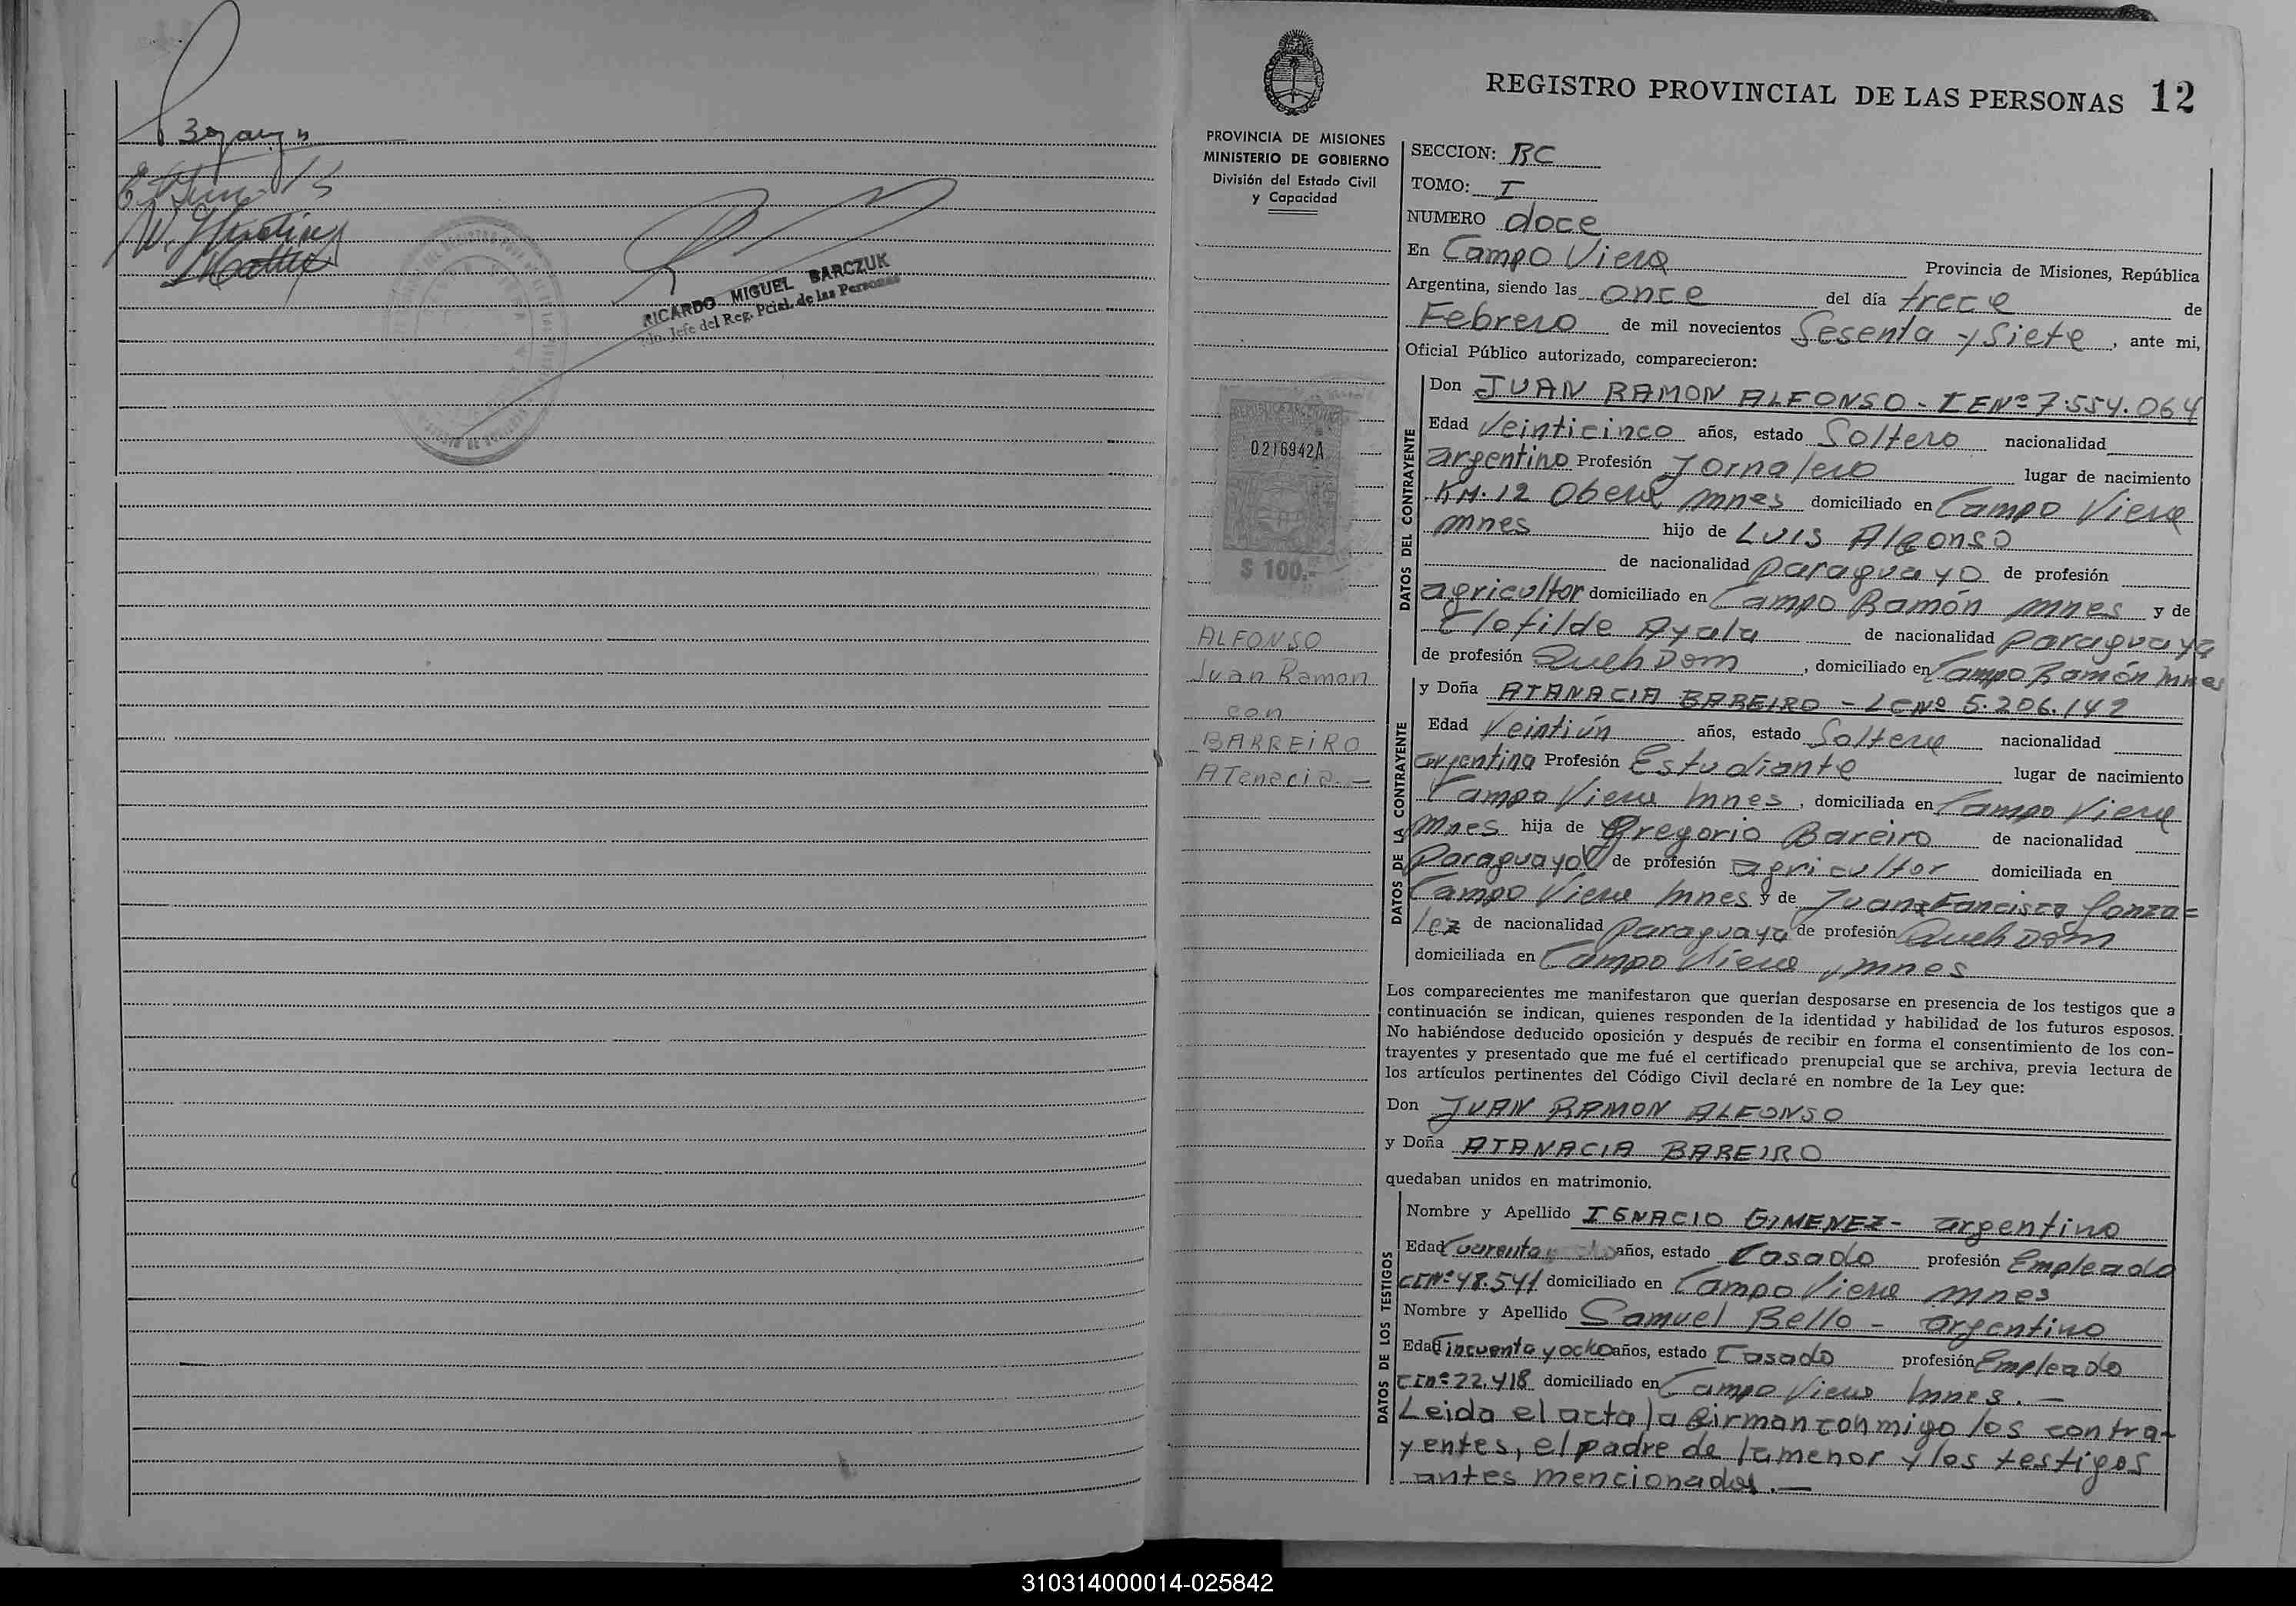 RICARDO MIGUEL BARCZUK
Jefe del Reg. Pcial. de las Personas
REGISTRO PROVINCIAL DE LAS PERSONAS 12
PROVINCIA DE MISIONES
MINISTERIO DE GOBIERNO
División del Estado Civil
y Capacidad
0216942A
$ 100.-
ALFONSO
Juan Ramon
con
BARREIRO
ATanacia.-
SECCION: RC
TOMO: I
NUMERO doce
En Campo Viera Provincia de Misiones, República
Argentina, siendo las once del día trece de
Febrero de mil novecientos Sesenta y Siete, ante mi,
Oficial Público autorizado, comparecieron:
DATOS DEL CONTRAYENTE
Don JUAN RAMON ALFONSO - LENº 7.554.064
Edad Veinticinco años, estado Soltero nacionalidad
argentino Profesión Jornalero lugar de nacimiento
KM. 12 Obera Mnes domiciliado en Campo Viera
Mnes hijo de Luis Alfonso
de nacionalidad paraguayo de profesión
agricultor domiciliado en Campo Ramón Mnes y de
Clotilde Ayala de nacionalidad paraguaya
de profesión Queh Dom, domiciliado en Campo Ramón Mnes
DATOS DE LA CONTRAYENTE
y Doña ATANACIA BAREIRO - LCNº 5.206.142
Edad Veintiún años, estado Soltera nacionalidad
argentina Profesión Estudiante lugar de nacimiento
Campo Viera Mnes, domiciliada en Campo Viera
Mnes hija de Gregorio Bareiro de nacionalidad
Paraguayo de profesión agricultor domiciliada en
Campo Viera Mnes y de Juana Francisca Gonza=
lez de nacionalidad Paraguaya de profesión Queh Dom
domiciliada en Campo Viera, Mnes
Los comparecientes me manifestaron que querían desposarse en presencia de los testigos que a
continuación se indican, quienes responden de la identidad y habilidad de los futuros esposos.
No habiéndose deducido oposición y después de recibir en forma el consentimiento de los con-
trayentes y presentado que me fué el certificado prenupcial que se archiva, previa lectura de
los artículos pertinentes del Código Civil declaré en nombre de la Ley que:
Don JUAN RAMON ALFONSO
y Doña ATANACIA BAREIRO
quedaban unidos en matrimonio.
DATOS DE LOS TESTIGOS
Nombre y Apellido IGNACIO GIMENEZ- argentino
Edad Cuarenta años, estado Casado profesión Empleado
CINº 48.541 domiciliado en Campo Viera Mnes
Nombre y Apellido Samuel Bello - argentino
Edad Cincuenta y ocho años, estado Casado profesión Empleado
CINº 22.418 domiciliado en Campo Viera Mnes.-
Leida el acta la firman conmigo los contra-
yentes, el padre de la menor y los testigos
antes mencionados.-
310314000014-025842